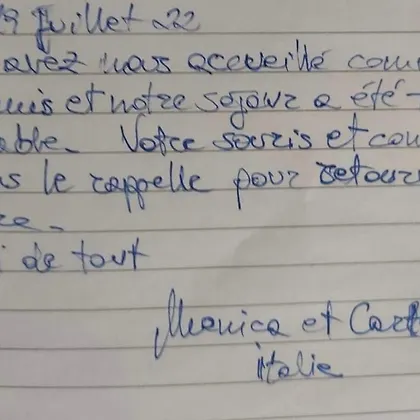 9 Juillet 22
avez nous accueillé com
mis et notre sejour a été -
able. Votre souris et cou
s le rappelle pour retour
ce.
i de tout
Monica et Carl
italie